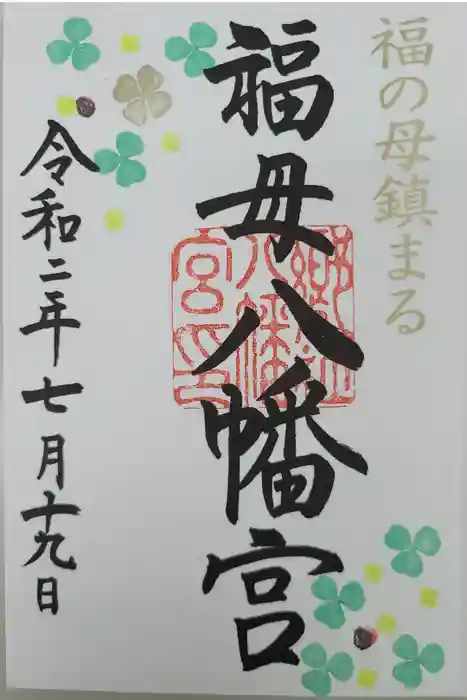 福の母鎮まる
福母八幡宮
郷社八幡宮印
令和二年七月十九日